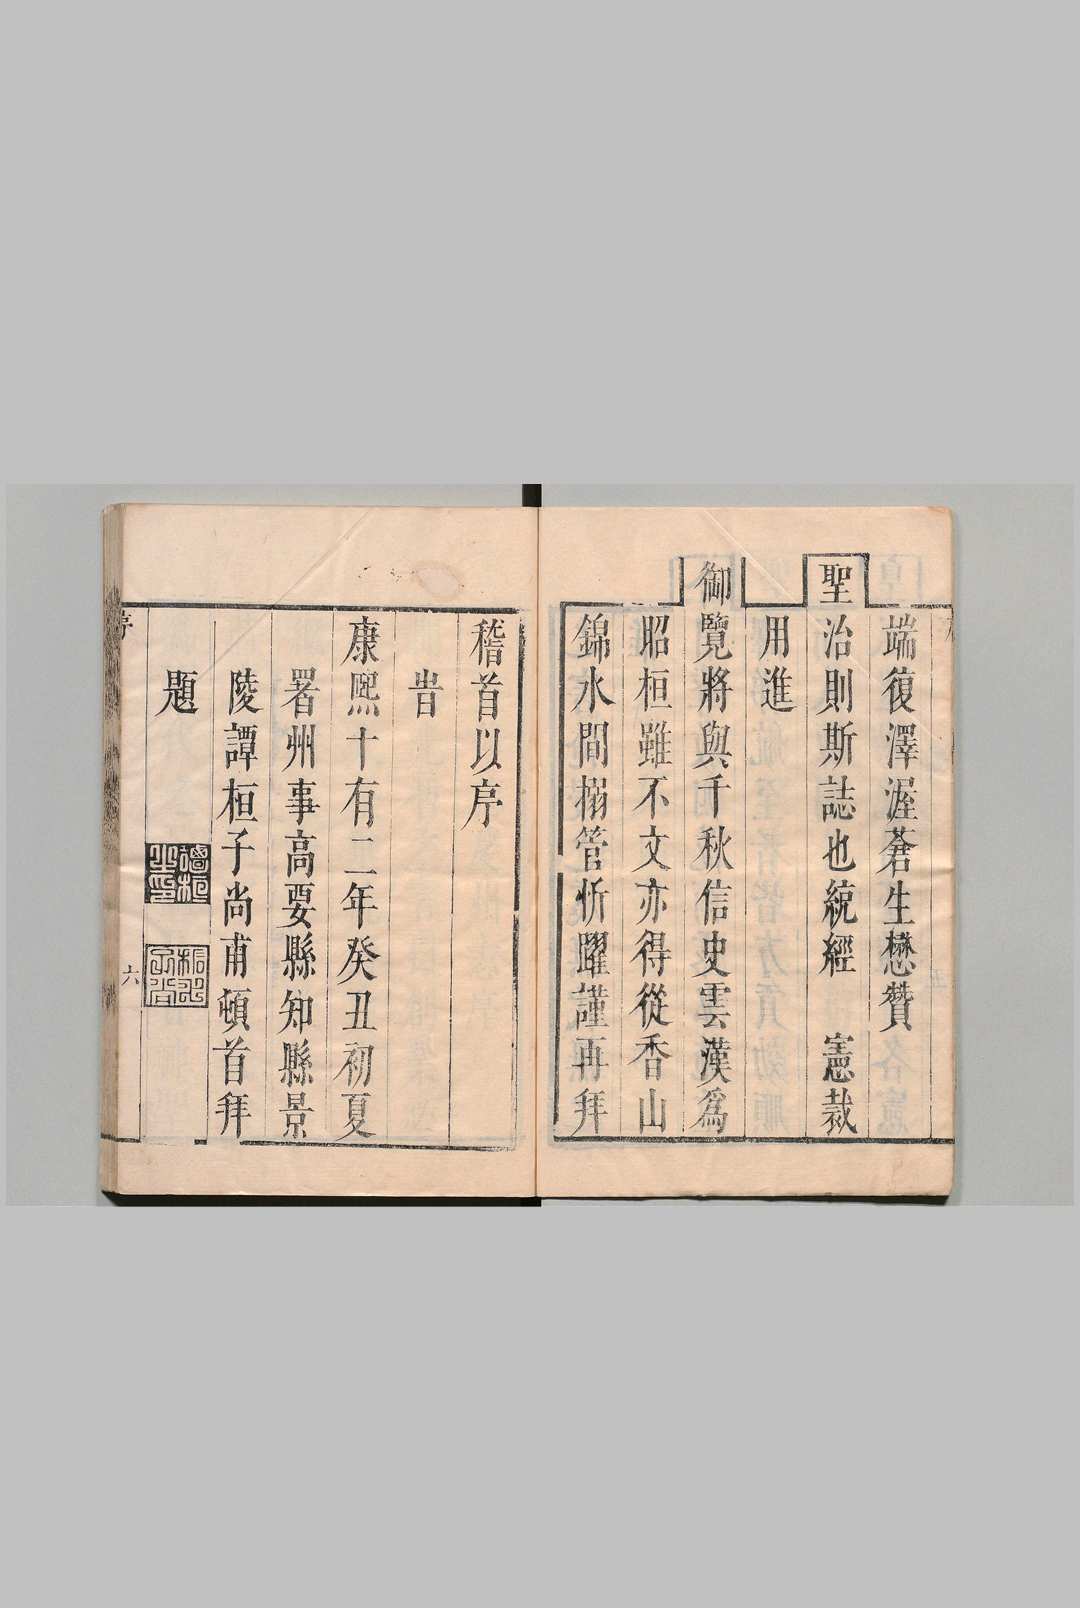 端復澤渥蒼生懋贊
聖治則斯誌也統經　憲裁
用進
御覽將與千秋信史雲漢爲
昭桓雖不文亦得從香山
錦水間搦管忻躍謹再拜
稽首以序
旹
康熙十有二年癸丑初夏
署州事高要縣知縣景
陵譚桓子尚甫頓首拜
題
譚桓之印
序
六